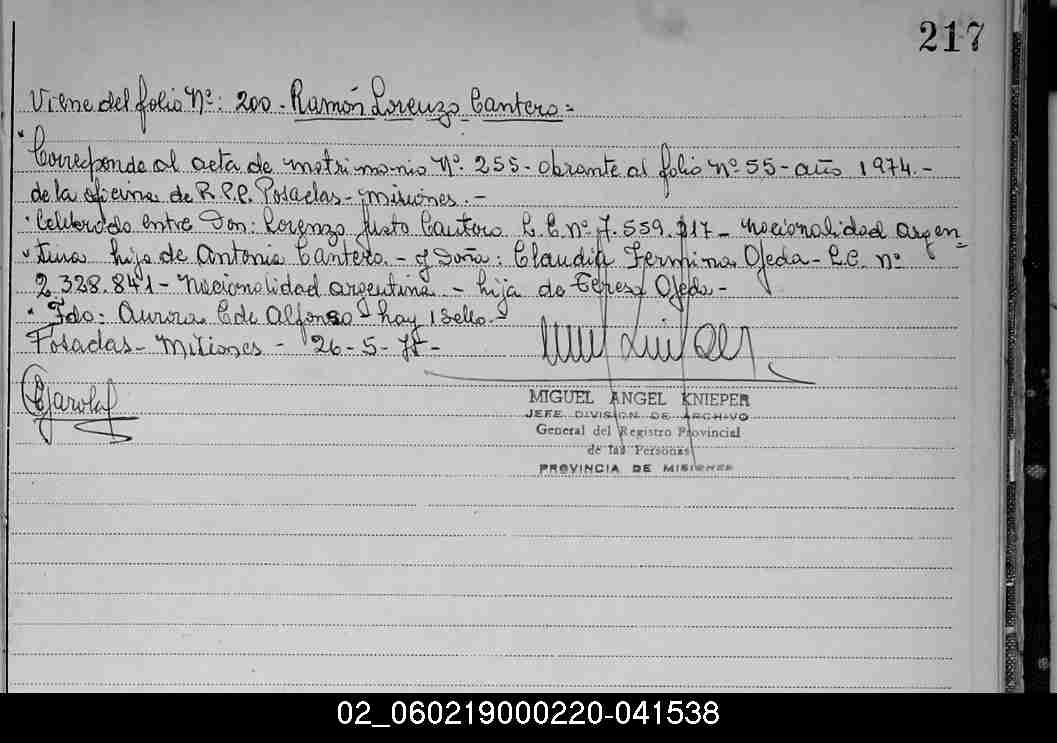 217
Viene del folio Nº: 200 - Ramón Lorenzo Cantero =
Corresponde al acta de matrimonio Nº. 255 - obrante al folio nº 55 - año 1974.-
de la oficina de R.P.P. Posadas - misiones.-
Celebrado entre Don: Lorenzo Justo Cantero L.E. nº 7.559.217 - nacionalidad argen=
tina hijo de Antonia Cantero.- y Doña: Claudia Fermina Ojeda - L.C. nº
2.328.841 - nacionalidad argentina - hija de Teresa Ojeda -
Fdo: Aurora C de Alfonso - hay 1 sello.-
Posadas - Misiones - 26-5-
MIGUEL ANGEL KNIEPER
JEFE DIVISION DE ARCHIVO
General del Registro Provincial
de las Personas
PROVINCIA DE MISIONES
02_060219000220-041538